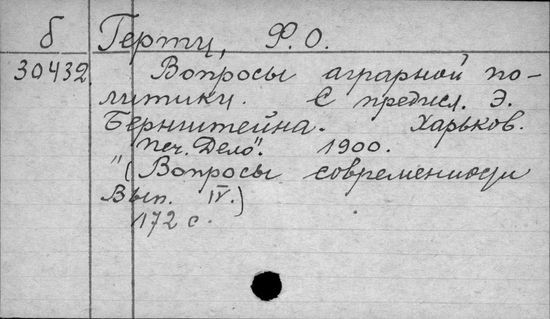 б Герту, Ф. О.
30432 Вопросы аграрной по-
литики. С предисл. Э.
Бернштейна. Харьков.
"Печ. Дело". 1900.
(Вопросы современности
Вып. IV.)
172 с.